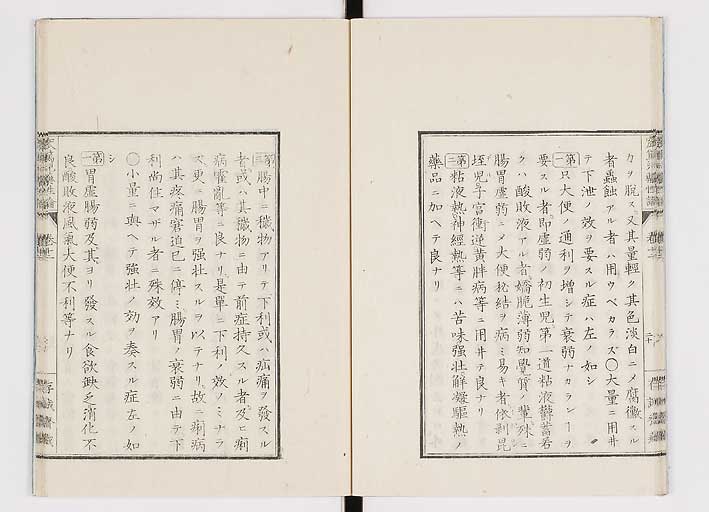 カヲ脱ス又其量輕ク其色淡白ニメ腐黴スル
者蟲蝕アル者ハ用ウベカラズ〇大量ニ用井
テ下泄ノ效ヲ要スル症ハ左ノ如シ
第一只大便ノ通利ヲ增シテ衰弱ナカランヿヲ
要スル者即虛弱ノ初生兒第一道粘液欝蓄若
クハ酸敗液アル者嬌脆薄弱知覺ノ輩殊ニ
腸胃虛弱ニメ大便秘結ヲ病ミ易キ者依剥昆
垤兒子宮衝逆黄胖病等ニ用井テ良ナリ
第二粘液熱神經熱等ニハ苦味强壯解凝驅熱ノ
藥品ニ加ヘテ良ナリ
第三腸中ニ穢物アリテ下利或ハ疝痛ヲ發スル
者或ハ其穢物ニ由テ前症持久スル者及ヒ痢
病霍亂等ニ良ナリ是單ニ下利ノ效ノミナラ
ス更ニ腸胃ヲ强壯スルヲ以テナリ故ニ痢病
ハ其疼痛窘迫已ニ停ミ腸胃ノ衰弱ニ由テ下
利尚住マザル者ニ殊效アリ
〇小量ニ與ヘテ强壯ノ効ヲ奏スル症左ノ如
シ
第一胃虛腸弱及其ヨリ發スル食欲缺乏消化不
良酸敗液風氣大便不利等ナリ